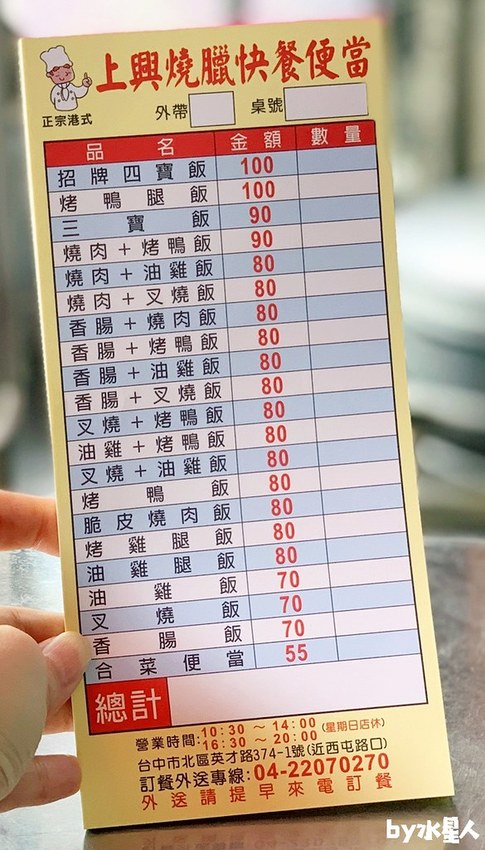 上興燒臘快餐便當
正宗港式 外帶 桌號
品名 金額 數量
招牌四寶飯 100
烤鴨腿飯 100
三寶飯 90
燒肉+烤鴨飯 90
燒肉+油雞飯 80
燒肉+叉燒飯 80
香腸+燒肉飯 80
香腸+烤鴨飯 80
香腸+油雞飯 80
香腸+叉燒飯 80
叉燒+烤鴨飯 80
油雞+烤鴨飯 80
叉燒+油雞飯 80
烤鴨飯 80
脆皮燒肉飯 80
烤雞腿飯 80
油雞腿飯 80
油雞飯 70
叉燒飯 70
香腸飯 70
合菜便當 55
總計
營業時間:10:30 ~ 14:00 (星期日店休)
16:30 ~ 20:00
台中市北區英才路374-1號(近西屯路口)
訂餐外送專線:04-22070270
外送請提早來電訂餐
by水星人